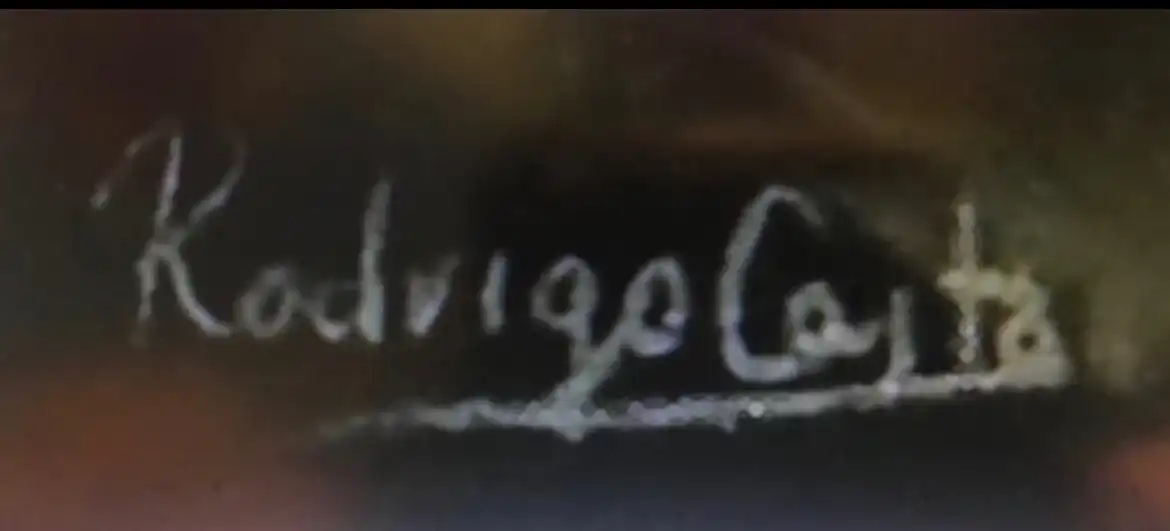 Rodrigo Costa